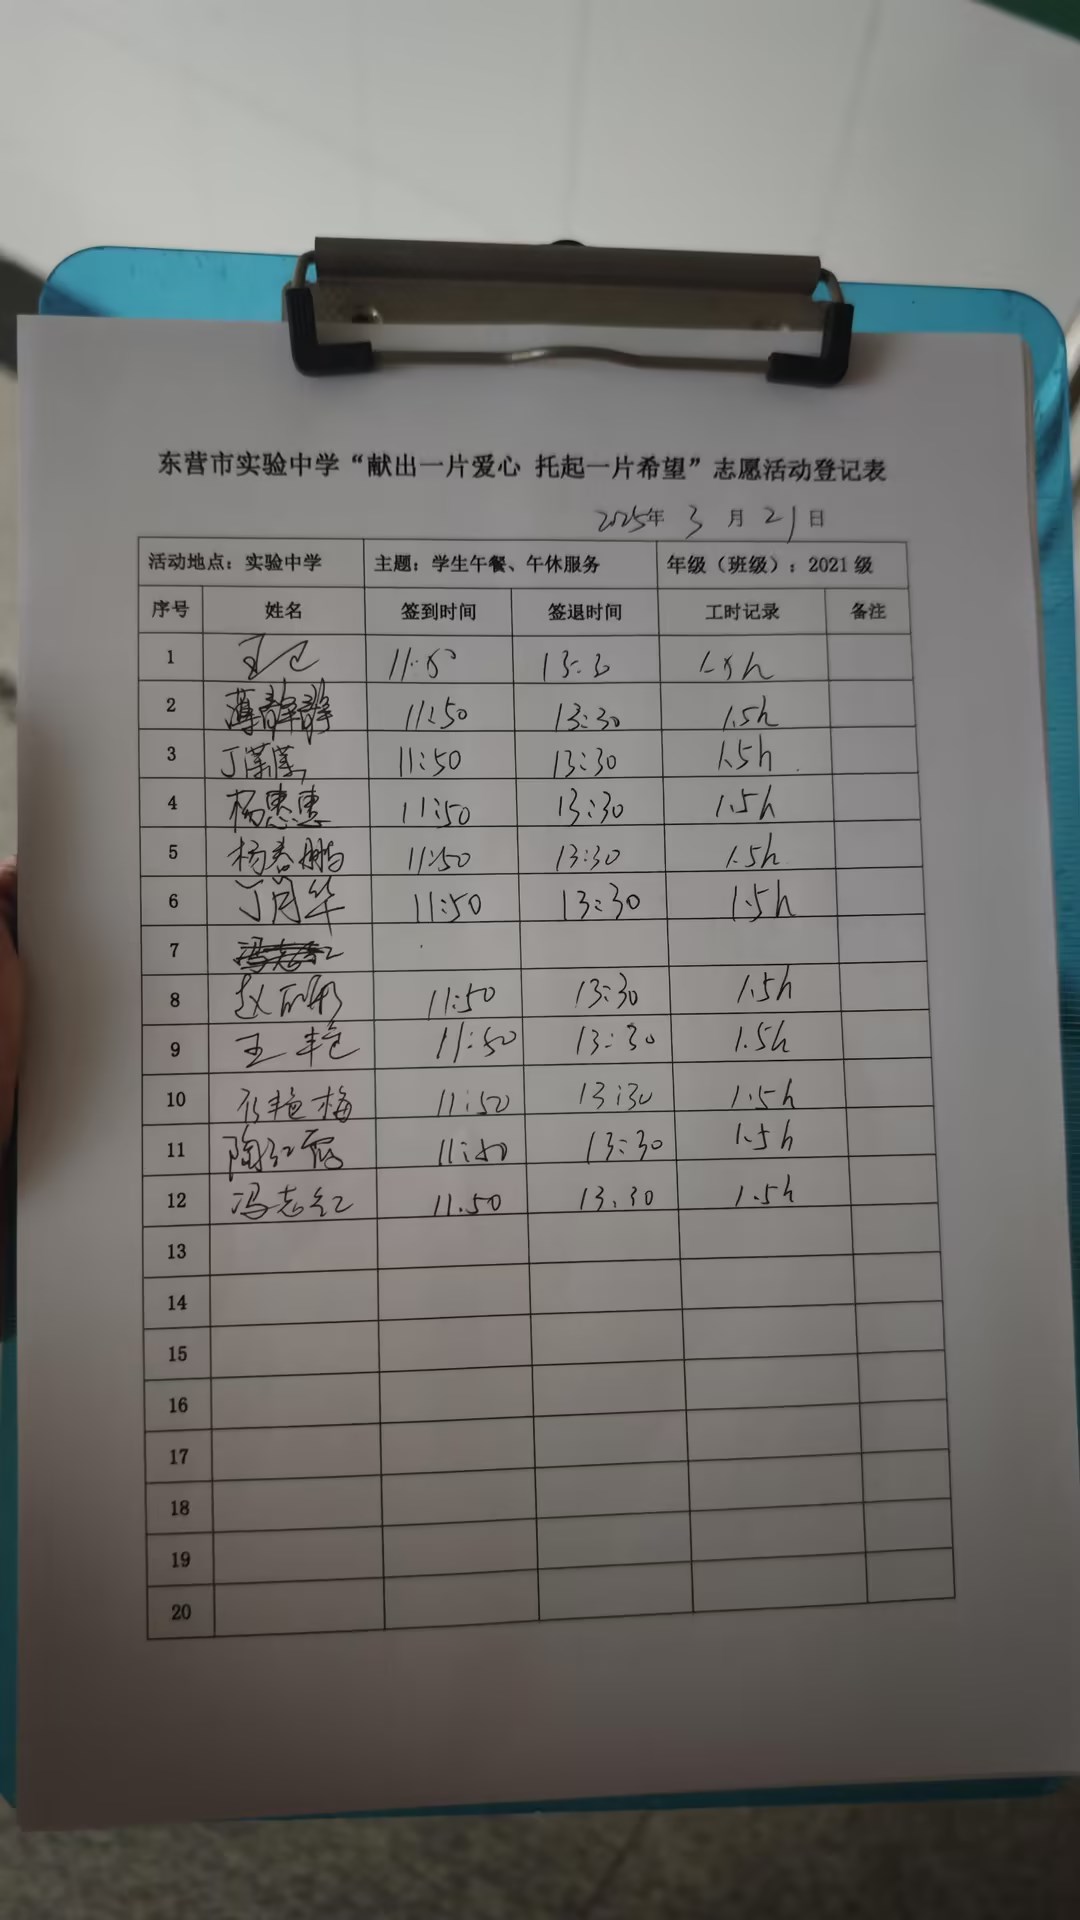 东营市实验中学“献出一片爱心 托起一片希望”志愿活动登记表
2025年 3 月 21 日
活动地点：实验中学 主题：学生午餐、午休服务 年级（班级）：2021 级
序号 姓名 签到时间 签退时间 工时记录 备注
1 王 11:50 13:30 1.5h
2 薄静静 11:50 13:30 1.5h
3 丁 11:50 13:30 1.5h
4 杨惠惠 11:50 13:30 1.5h
5 杨春鹏 11:50 13:30 1.5h
6 丁 华 11:50 13:30 1.5h
7 冯志红
8 赵 11:50 13:30 1.5h
9 王艳 11:50 13:30 1.5h
10 艳梅 11:50 13:30 1.5h
11 陶红霞 11:50 13:30 1.5h
12 冯志红 11.50 13.30 1.5h
13
14
15
16
17
18
19
20